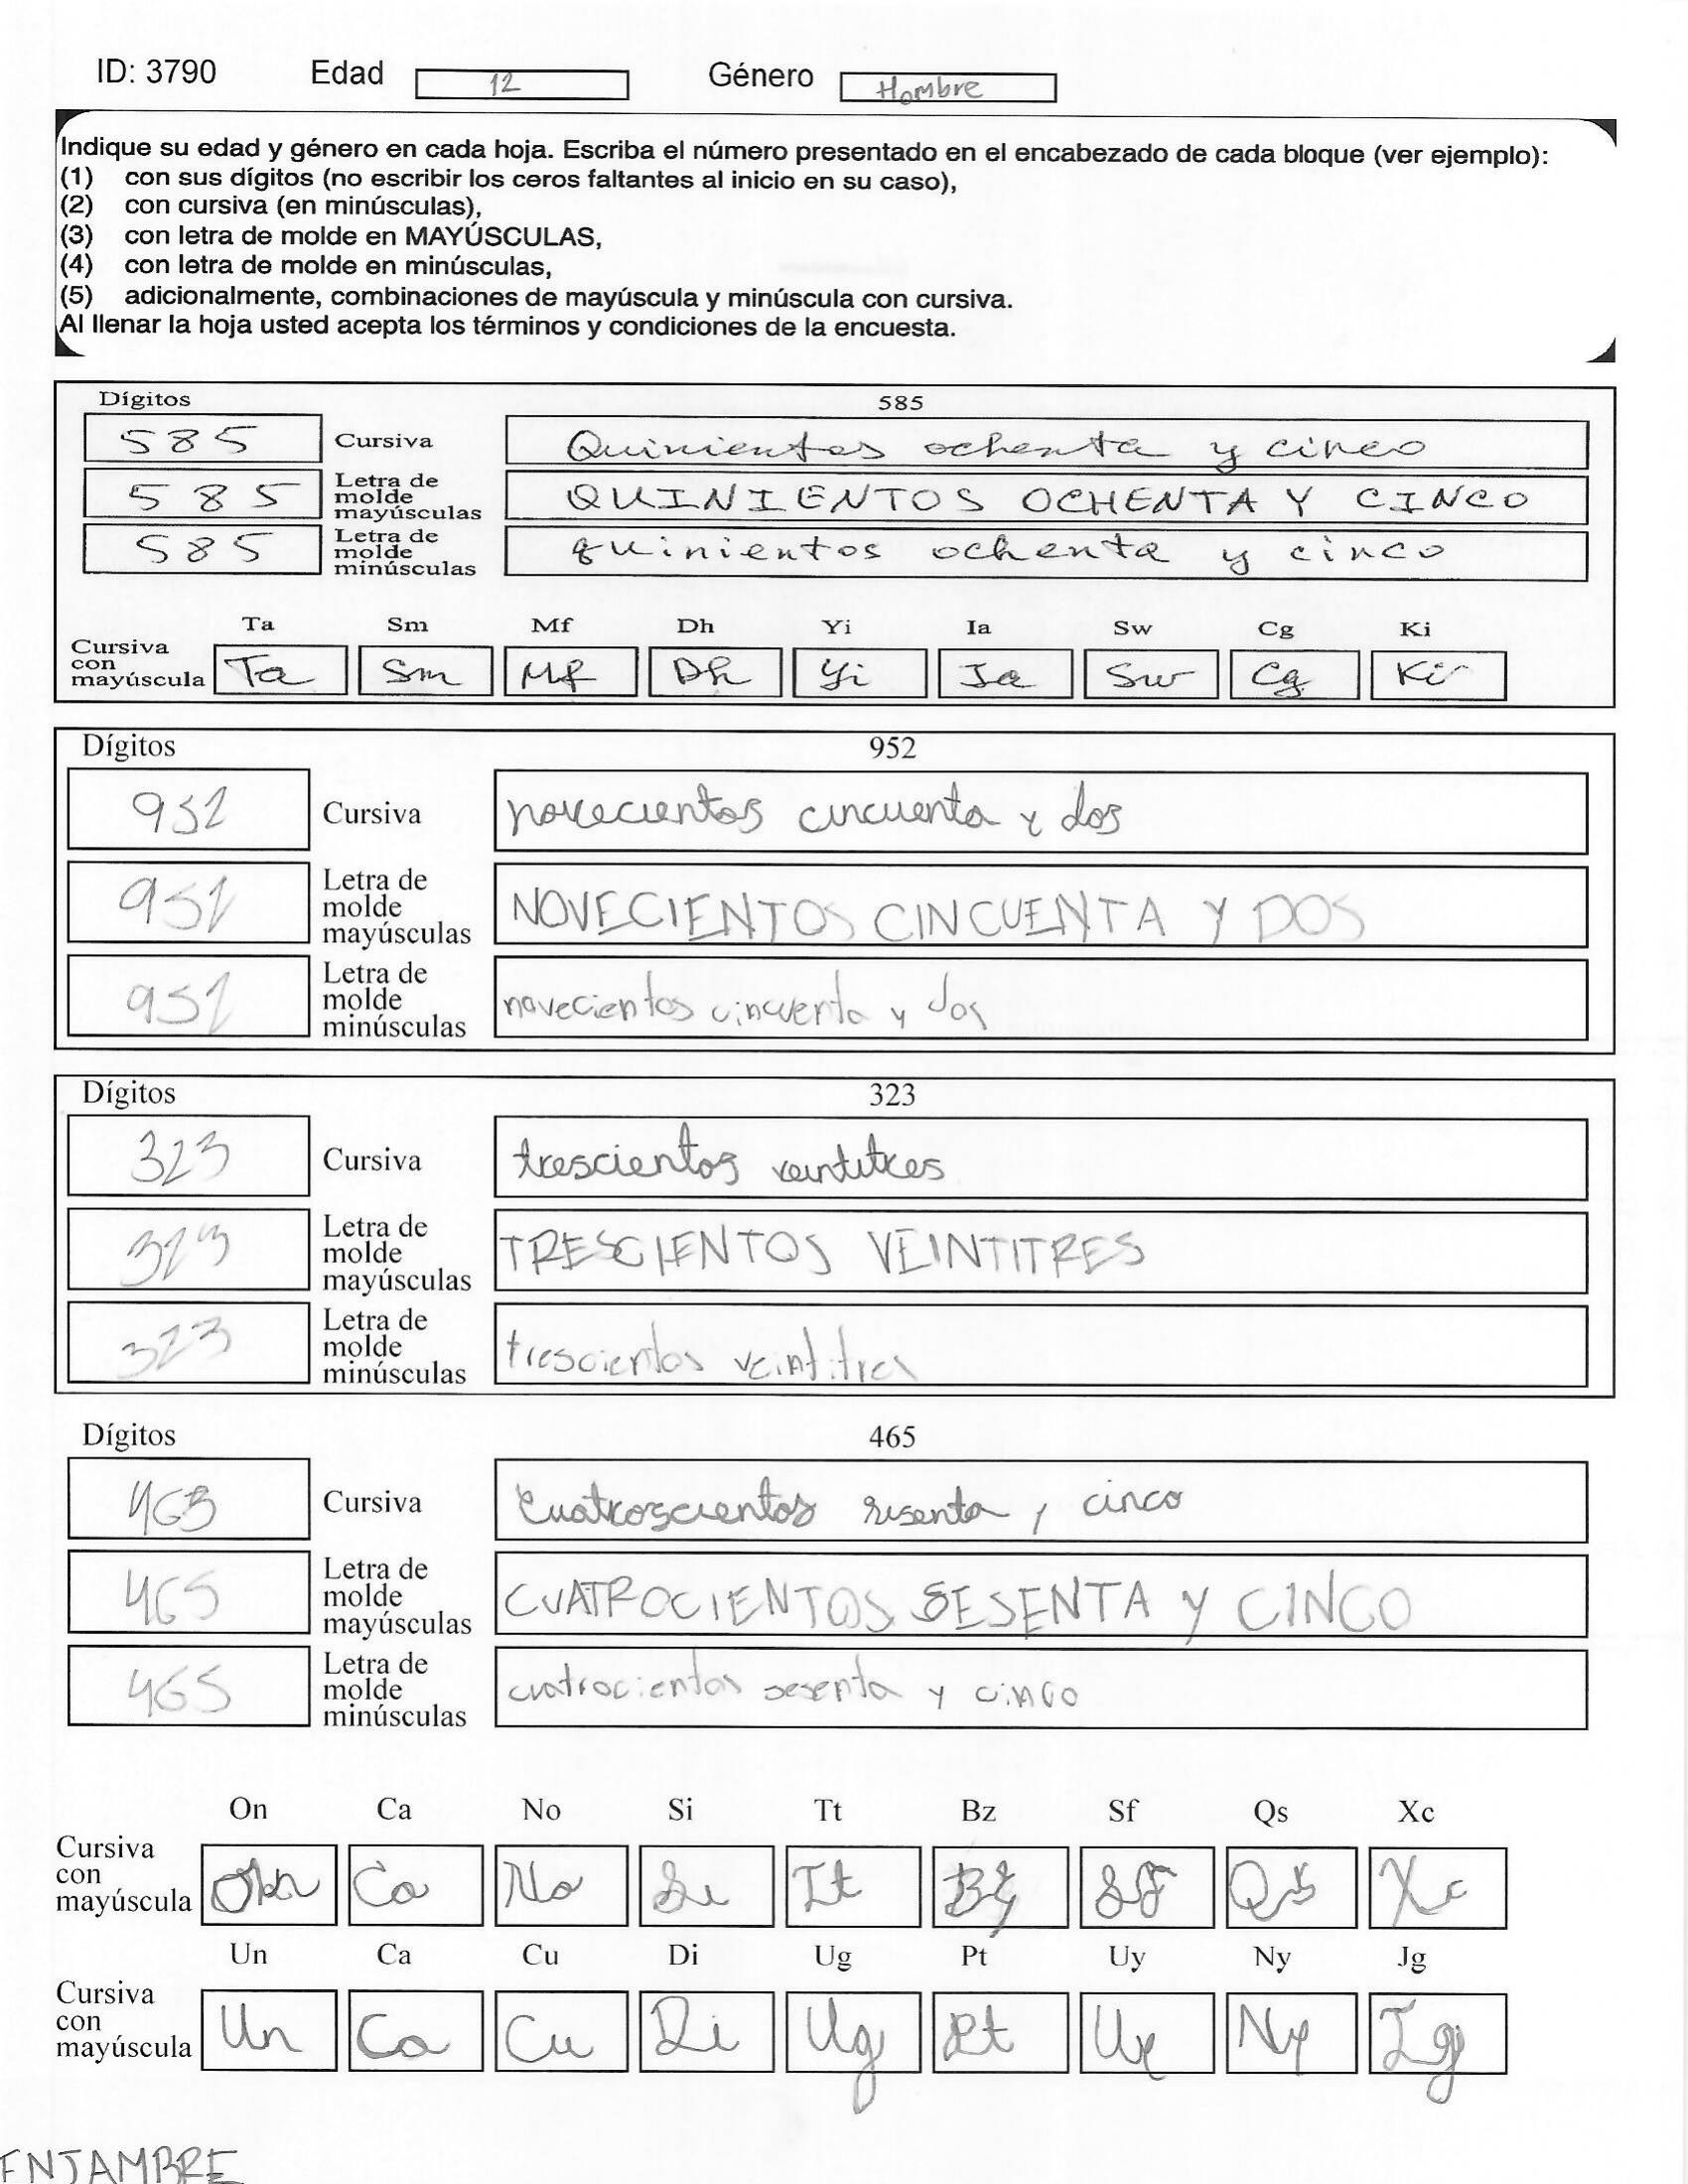 ID: 3790 Edad 12 Género Hombre
Indique su edad y género en cada hoja. Escriba el número presentado en el encabezado de cada bloque (ver ejemplo):
(1) con sus dígitos (no escribir los ceros faltantes al inicio en su caso),
(2) con cursiva (en minúsculas),
(3) con letra de molde en MAYÚSCULAS,
(4) con letra de molde en minúsculas,
(5) adicionalmente, combinaciones de mayúscula y minúscula con cursiva.
Al llenar la hoja usted acepta los términos y condiciones de la encuesta.
Dígitos 585
585 Cursiva Quinientos ochenta y cinco
585 Letra de molde mayúsculas QUINIENTOS OCHENTA Y CINCO
585 Letra de molde minúsculas quinientos ochenta y cinco
Ta Sm Mf Dh Yi Ia Sw Cg Ki
Cursiva con mayúscula Ta Sm Mf Dh Yi Ia Sw Cg Ki
Dígitos 952
952 Cursiva novecientos cincuenta y dos
952 Letra de molde mayúsculas NOVECIENTOS CINCUENTA Y DOS
952 Letra de molde minúsculas novecientos cincuenta y dos
Dígitos 323
323 Cursiva trescientos veintitres
323 Letra de molde mayúsculas TRESCIENTOS VEINTITRES
323 Letra de molde minúsculas trescientos veintitres
Dígitos 465
465 Cursiva Cuatroscientos sesenta y cinco
465 Letra de molde mayúsculas CUATROCIENTOS SESENTA Y CINCO
465 Letra de molde minúsculas cuatrocientos sesenta y cinco
On Ca No Si Tt Bz Sf Qs Xc
Cursiva con mayúscula On Ca No Si Tt Bz Sf Qs Xc
Un Ca Cu Di Ug Pt Uy Ny Jg
Cursiva con mayúscula Un Ca Cu Di Ug Pt Uy Ny Jg
ENJAMBRE